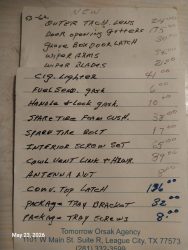 NEW
53-62
OUTER TACH. LENS
DOOR OPENING GUTTERS 175
GLOVE BOX DOOR LATCH
WIPER ARMS
WIPER BLADES
CIG. LIGHTER 41.00
FUEL SEND. GASK 6.00
HANDLE & LOCK GASK. 10.00
SPARE TIRE FOAM CUSH. 38
SPARE TIRE BOLT 17
INTERIOR SCREW SET 65.00
COWL VENT LINK & HDWR. 99.00
ANTENNA NUT 8.00
CONV. TOP LATCH 136.00
PACKAGE TRAY BRACKET 32.00
PACKAGE TRAY SCREWS 8.00
Tomorrow Orsak Agency
1101 W Main St. Suite R, League City, TX 77573
(281) 332-3599
May 23, 2026